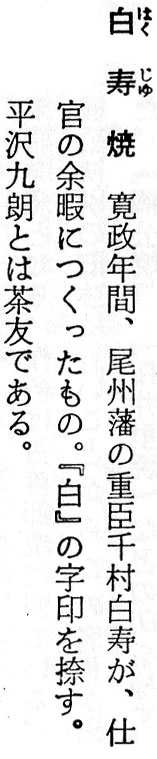 白寿焼　寛政年間、尾州藩の重臣千村白寿が、仕
官の余暇につくったもの。『白』の字印を捺す。
平沢九朗とは茶友である。
はく
じゅ